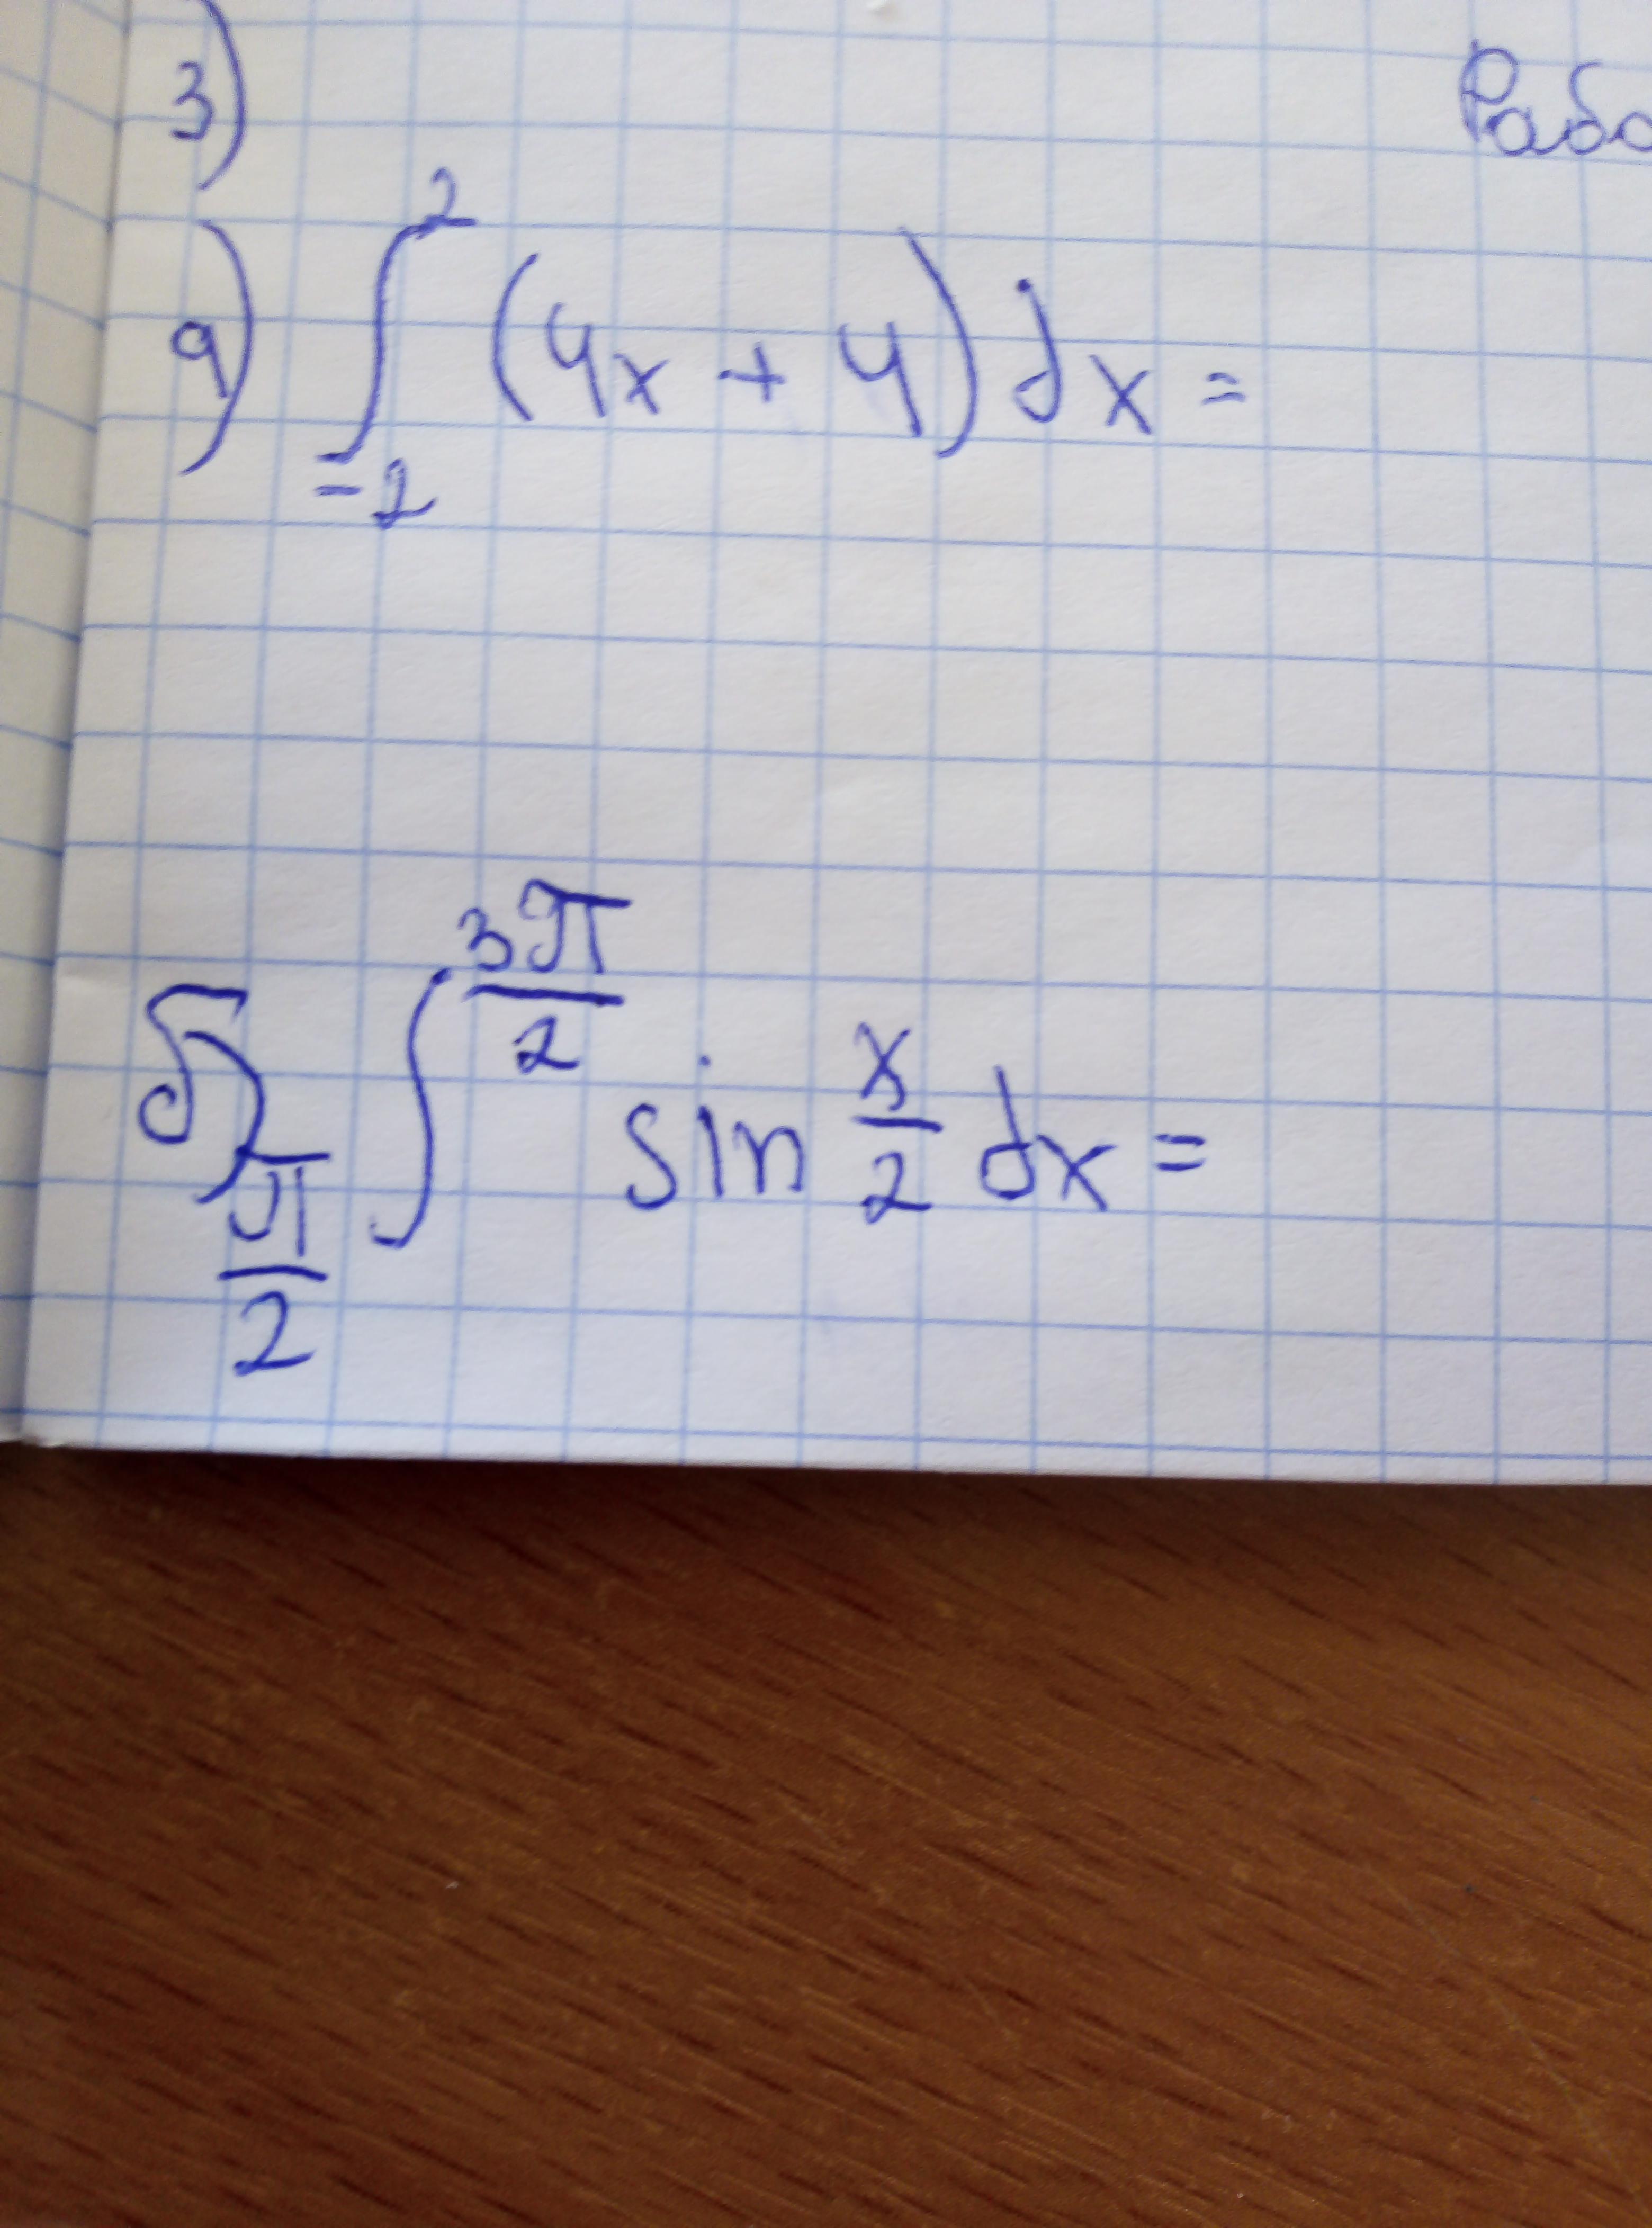 3)
Рабо
а) ∫₋₂² (4x + 4) dx =
б) ∫_{π/2}^{3π/2} sin x/2 dx =